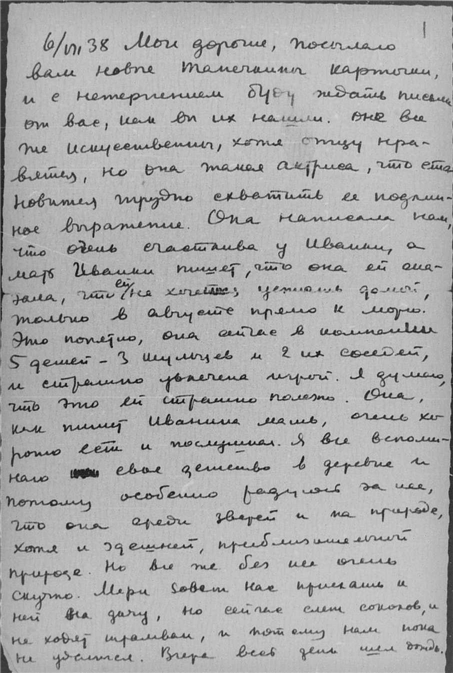 1
6/VII 38 Мои дорогие, посылаю
вам новые Танечкины карточки,
и с нетерпением буду ждать письма
от вас, как вы их нашли. Оне все
же искусственны, хотя отцу нра-
вятся, но она такая актриса, что ста
новится трудно схватить ее подлин-
ное выражение. Она написала нам,
что очень счастлива у Иванки, а
мать Иванки пишет, что она ей ска-
зала, что ей не хочется уезжать домой,
только в августе прямо к морю.
Это понятно, она сейчас в компании
5 детей – 3 Шульцев и 2 их соседей,
и страшно увлечена игрой. Я думаю,
что это ей страшно полезно. Она,
как пишет Иванкина мать, очень хо
рошо ест и послушная. Я все вспоми-
наю свое детство в деревне и
потому особенно радуюсь за нее,
что она среди зверей и на природе,
хотя и здешней, приблизительной
природе. Но все же без нее очень
скучно. Мери зовет нас приехать к
ней на дачу, но сейчас слет соколов, и
не ходят трамваи, и потому нам пока
не удалось. Вчера весь день шел дождь.